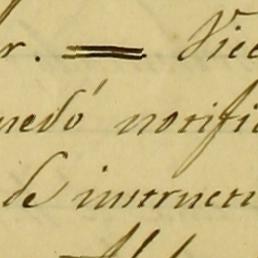 r. = Vice
uedó notific
de instructi